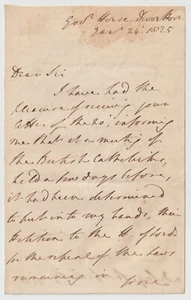 Gov.t House, Devonport
Jan.y 24.th 1825
Dear Sir
I have had the
pleasure of receiving your
letter of the 20.th informing
me that at a meeting of
the British Catholicks,
held a few days before,
it had been determined
to put into my hands, their
Petition to the H. of Lords
for the repeal of the Laws
remaining in